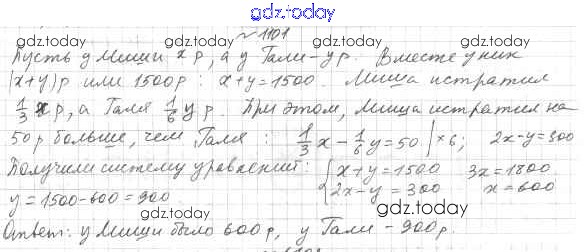 gdz.today
№ 1101
gdz.today gdz.today
Пусть у Миши x р, а у Гали - y р. Вместе у них
(x+y)р или 1500р : x+y=1500. Миша истратил
1/3 x р, а Галя 1/6 y р. При этом, Миша истратил на
50р больше, чем Галя : 1/3 x - 1/6 y = 50 | ×6; 2x-y=300
Получили систему уравнений: { x+y=1500 3x=1800
y = 1500-600=900 { 2x-y = 300 x=600
gdz.today gdz.today
Ответ: у Миши было 600р, у Гали - 900р.
gdz.today